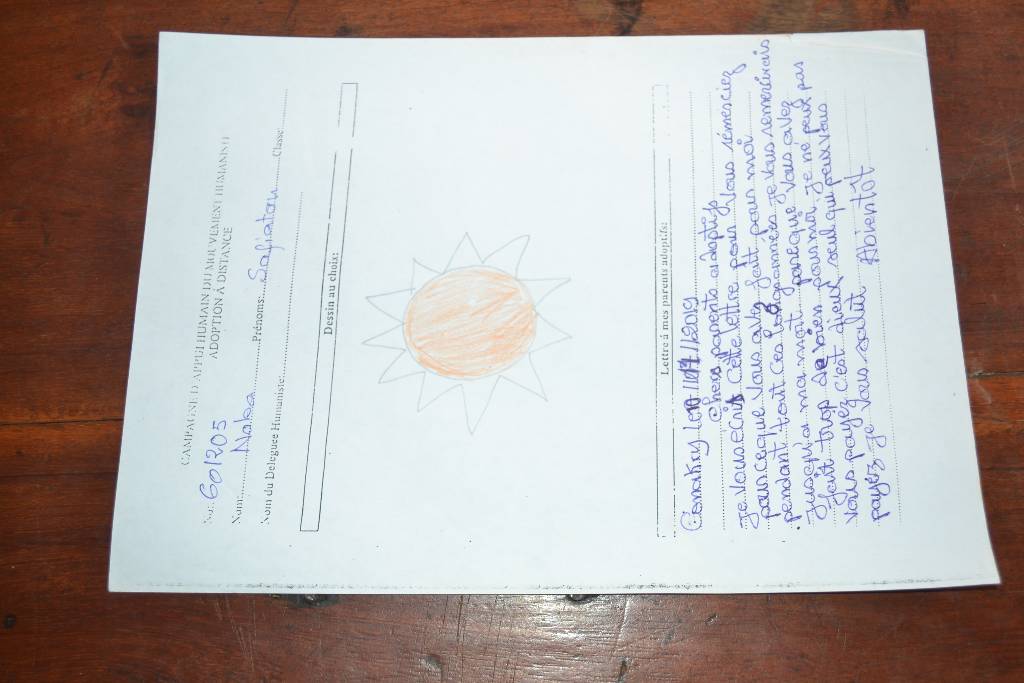 CAMPAGNE D'APPUI HUMAIN DU MOUVEMENT HUMANISTE
ADOPTION À DISTANCE
No: 60/205
Nom: Naba Prénoms: Safiatou Classe:
Nom du Deleguee Humaniste:
Dessin au choix:
Lettre à mes parents adoptifs:
Conakry le 10/07/2019
chers parents adoptifs
je vous écris cette lettre pour vous rémerciez
pour ce que vous avez fait pour moi
pendant tout ces longannées je vous remercirais
jusqu'a ma mort parceque vous avez
fait trop de bien pour moi je ne peut pas
vous payez c'est dieu seul qui peux vous
payez je vous salut Abientôt